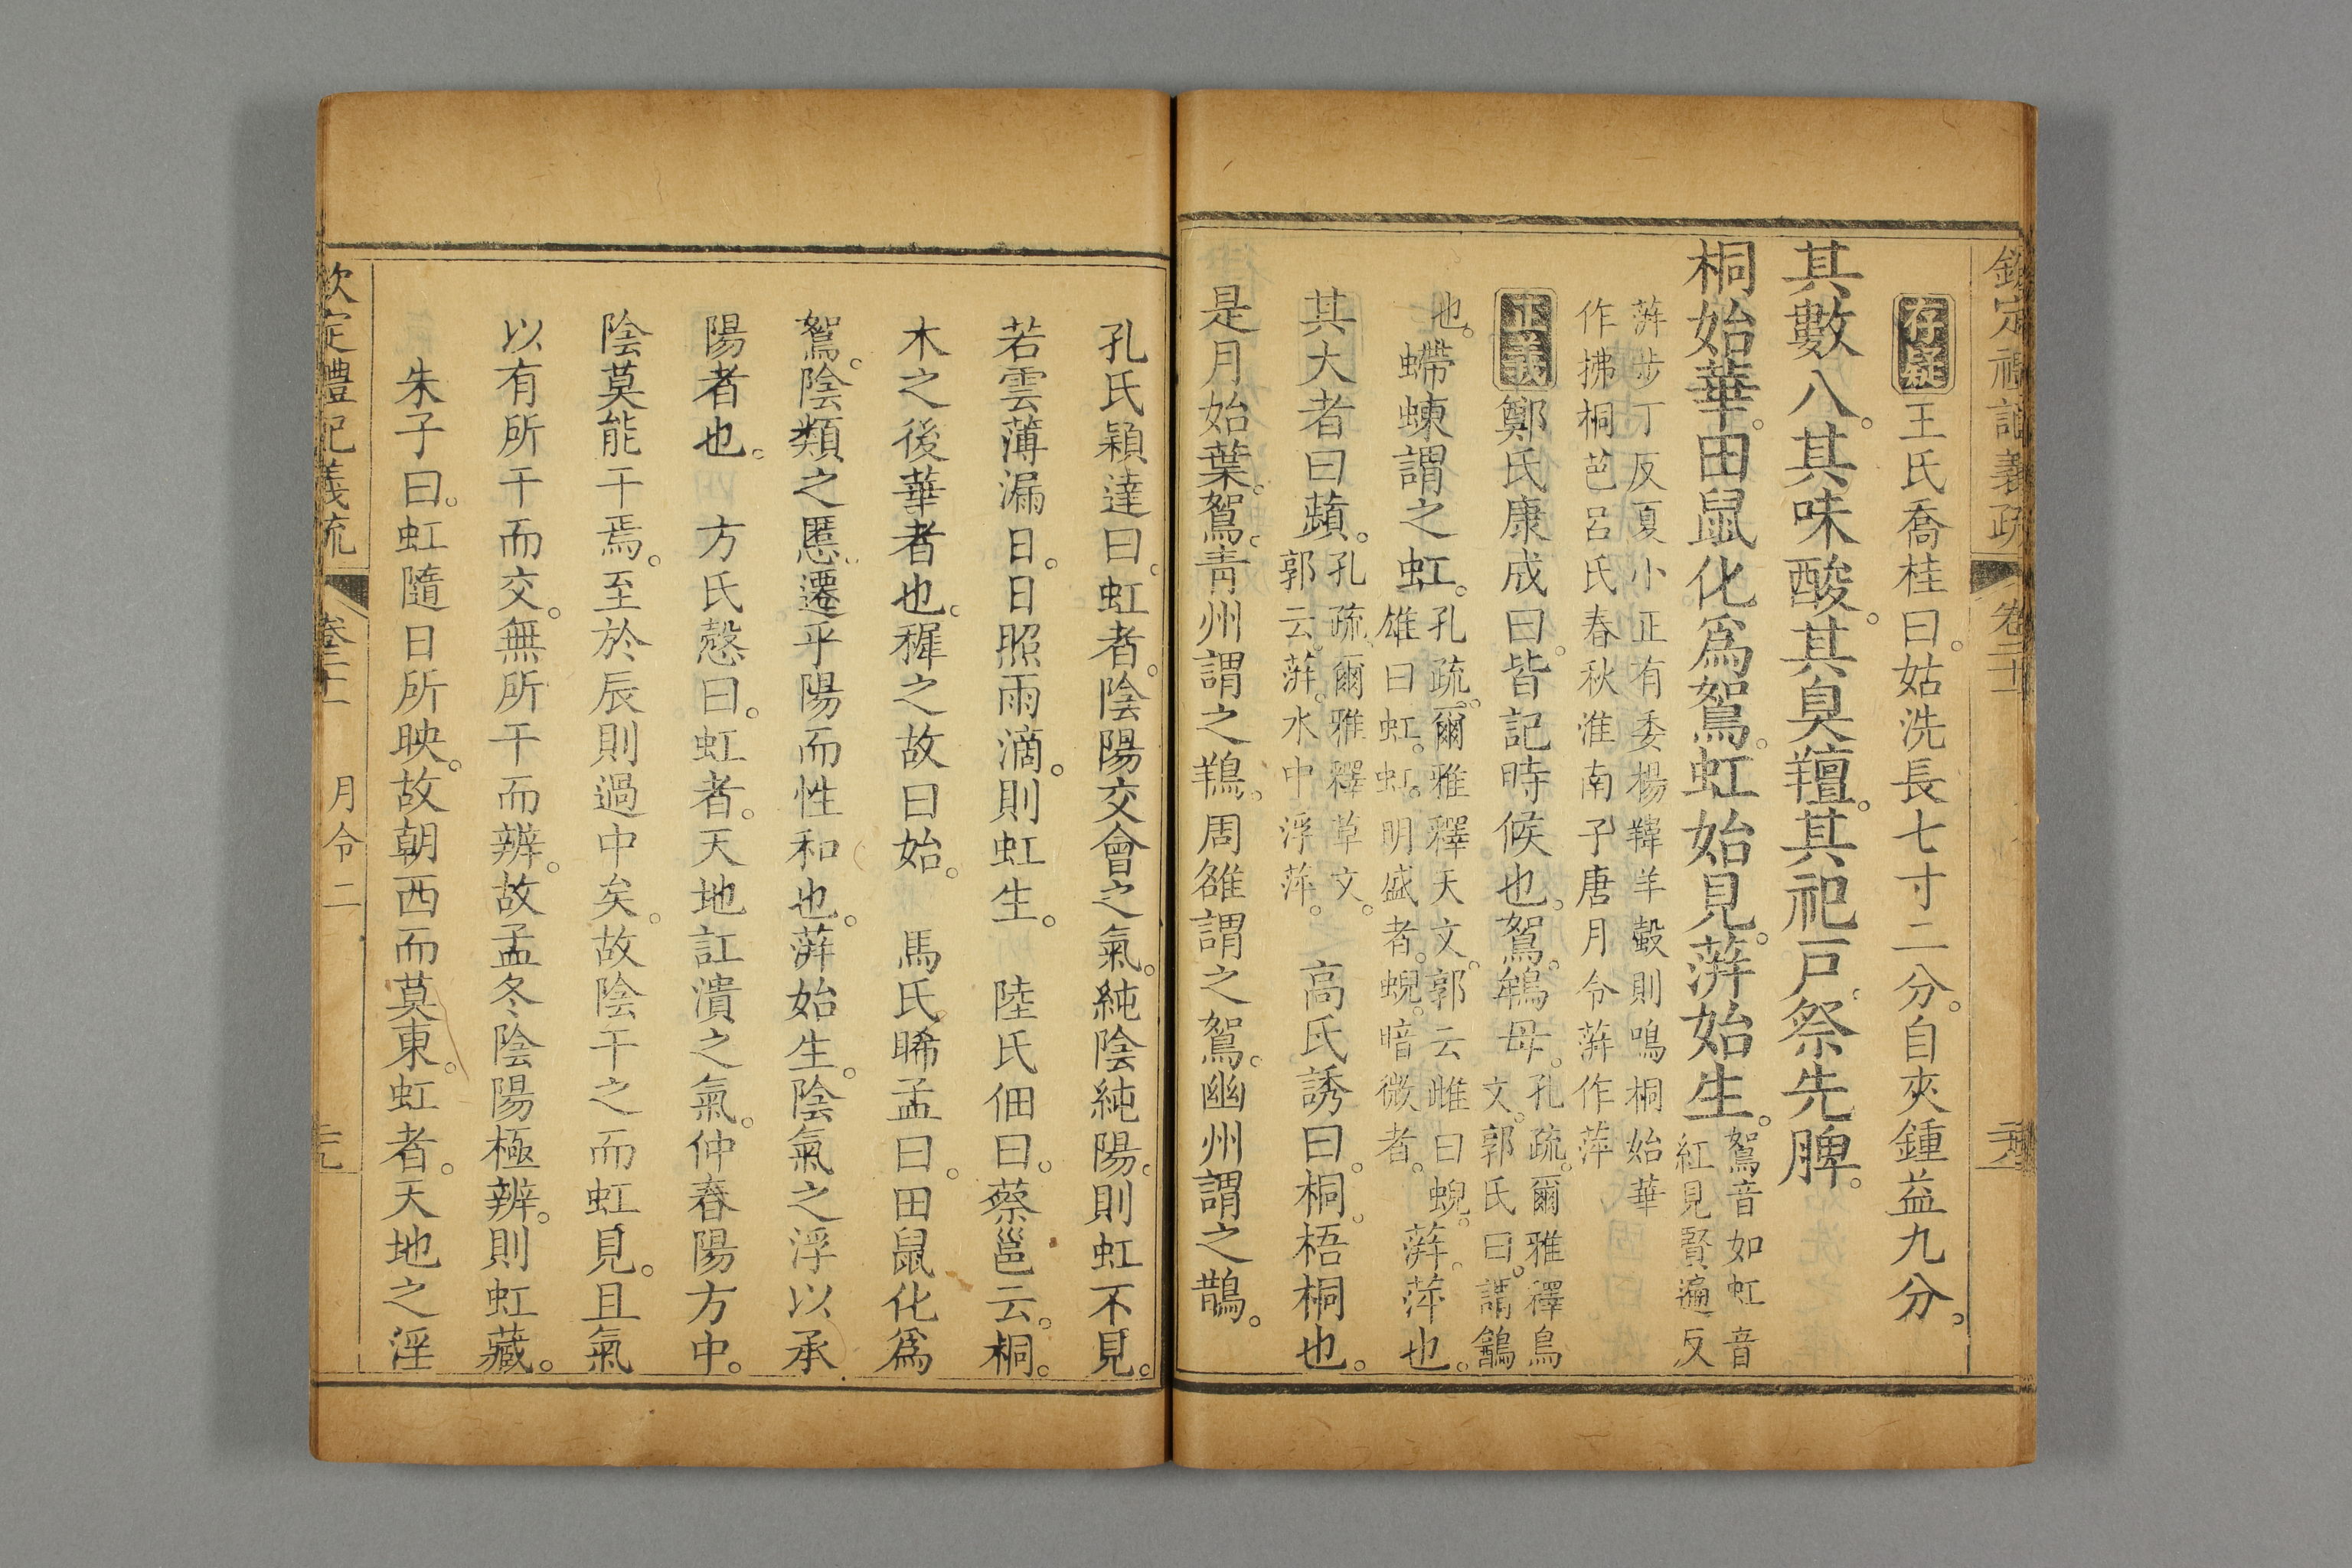 欽定禮記義疏 卷二十一
存疑王氏喬桂曰。姑洗長七寸二分。自夾鍾益九分。
其數八。其味酸。其臭羶。其祀戶。祭先脾。
桐始華。田鼠化爲鴽。虹始見。蓱始生。鴽音如虹音
紅見賢遍反
蓱步丁反夏小正有委楊䍮羊瞉則鳴桐始華
作拂桐芭呂氏春秋淮南子唐月令蓱作萍
正義鄭氏康成曰。皆記時候也。鴽。鴾母。孔疏。爾雅釋鳥
文。郭氏曰。謂鶕
也。螮蝀謂之虹。孔疏。爾雅釋天文。郭云雌曰蜺。
雄曰虹。虹。明盛者。蜺。暗微者。蓱。萍也。
其大者曰蘋。孔疏。爾雅釋草文。
郭云。蓱。水中浮萍。 高氏誘曰。桐。梧桐也。
是月始葉。鴽。青州謂之鴾。周雒謂之鴽。幽州謂之鶕。
孔氏穎達曰。虹者。陰陽交會之氣。純陰純陽。則虹不見。
若雲薄漏日。日照雨滴。則虹生。 陸氏佃曰。蔡邕云。桐。
木之後華者也。穉之故曰始。 馬氏晞孟曰。田鼠化爲
鴽。陰類之慝。遷乎陽而性和也。蓱始生。陰氣之浮以承
陽者也。 方氏慤曰。虹者。天地訌潰之氣。仲春陽方中。
陰莫能干焉。至於辰則過中矣。故陰干之而虹見。且氣
以有所干而交。無所干而辨。故孟冬陰陽極辨。則虹藏。
朱子曰。虹隨日所映。故朝西而莫東。虹者。天地之淫
欽定禮記義疏 卷二十一 月令二